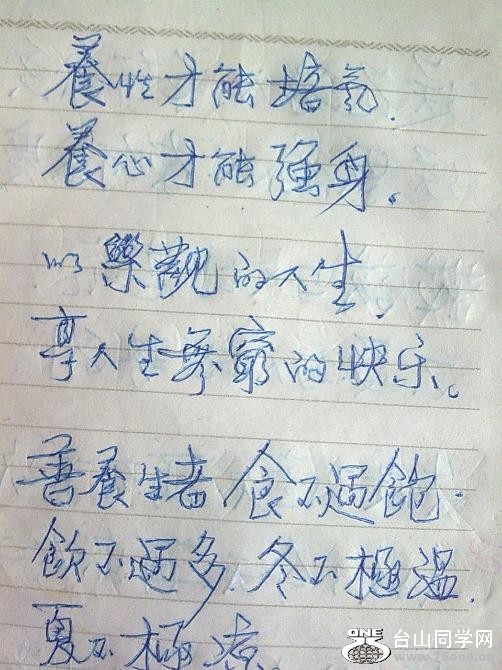 養性才能培氣，
養心才能强身。
以樂觀的人生，
享人生無窮的快乐。
善養生者，食不過飽，
飲不過多，冬不極溫，
夏不極凉。
ONE
台山同学网